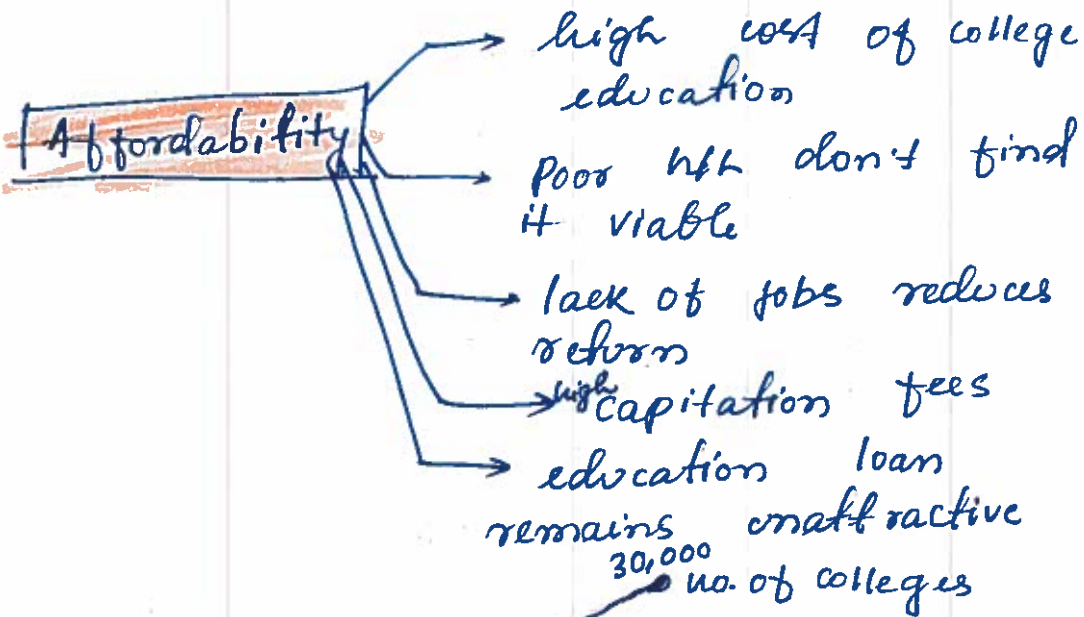 Affordability
high cost of college
education
Poor hhh don't find
it viable
lack of jobs reduces
return
high capitation fees
education loan
remains unattractive
30,000
no. of colleges